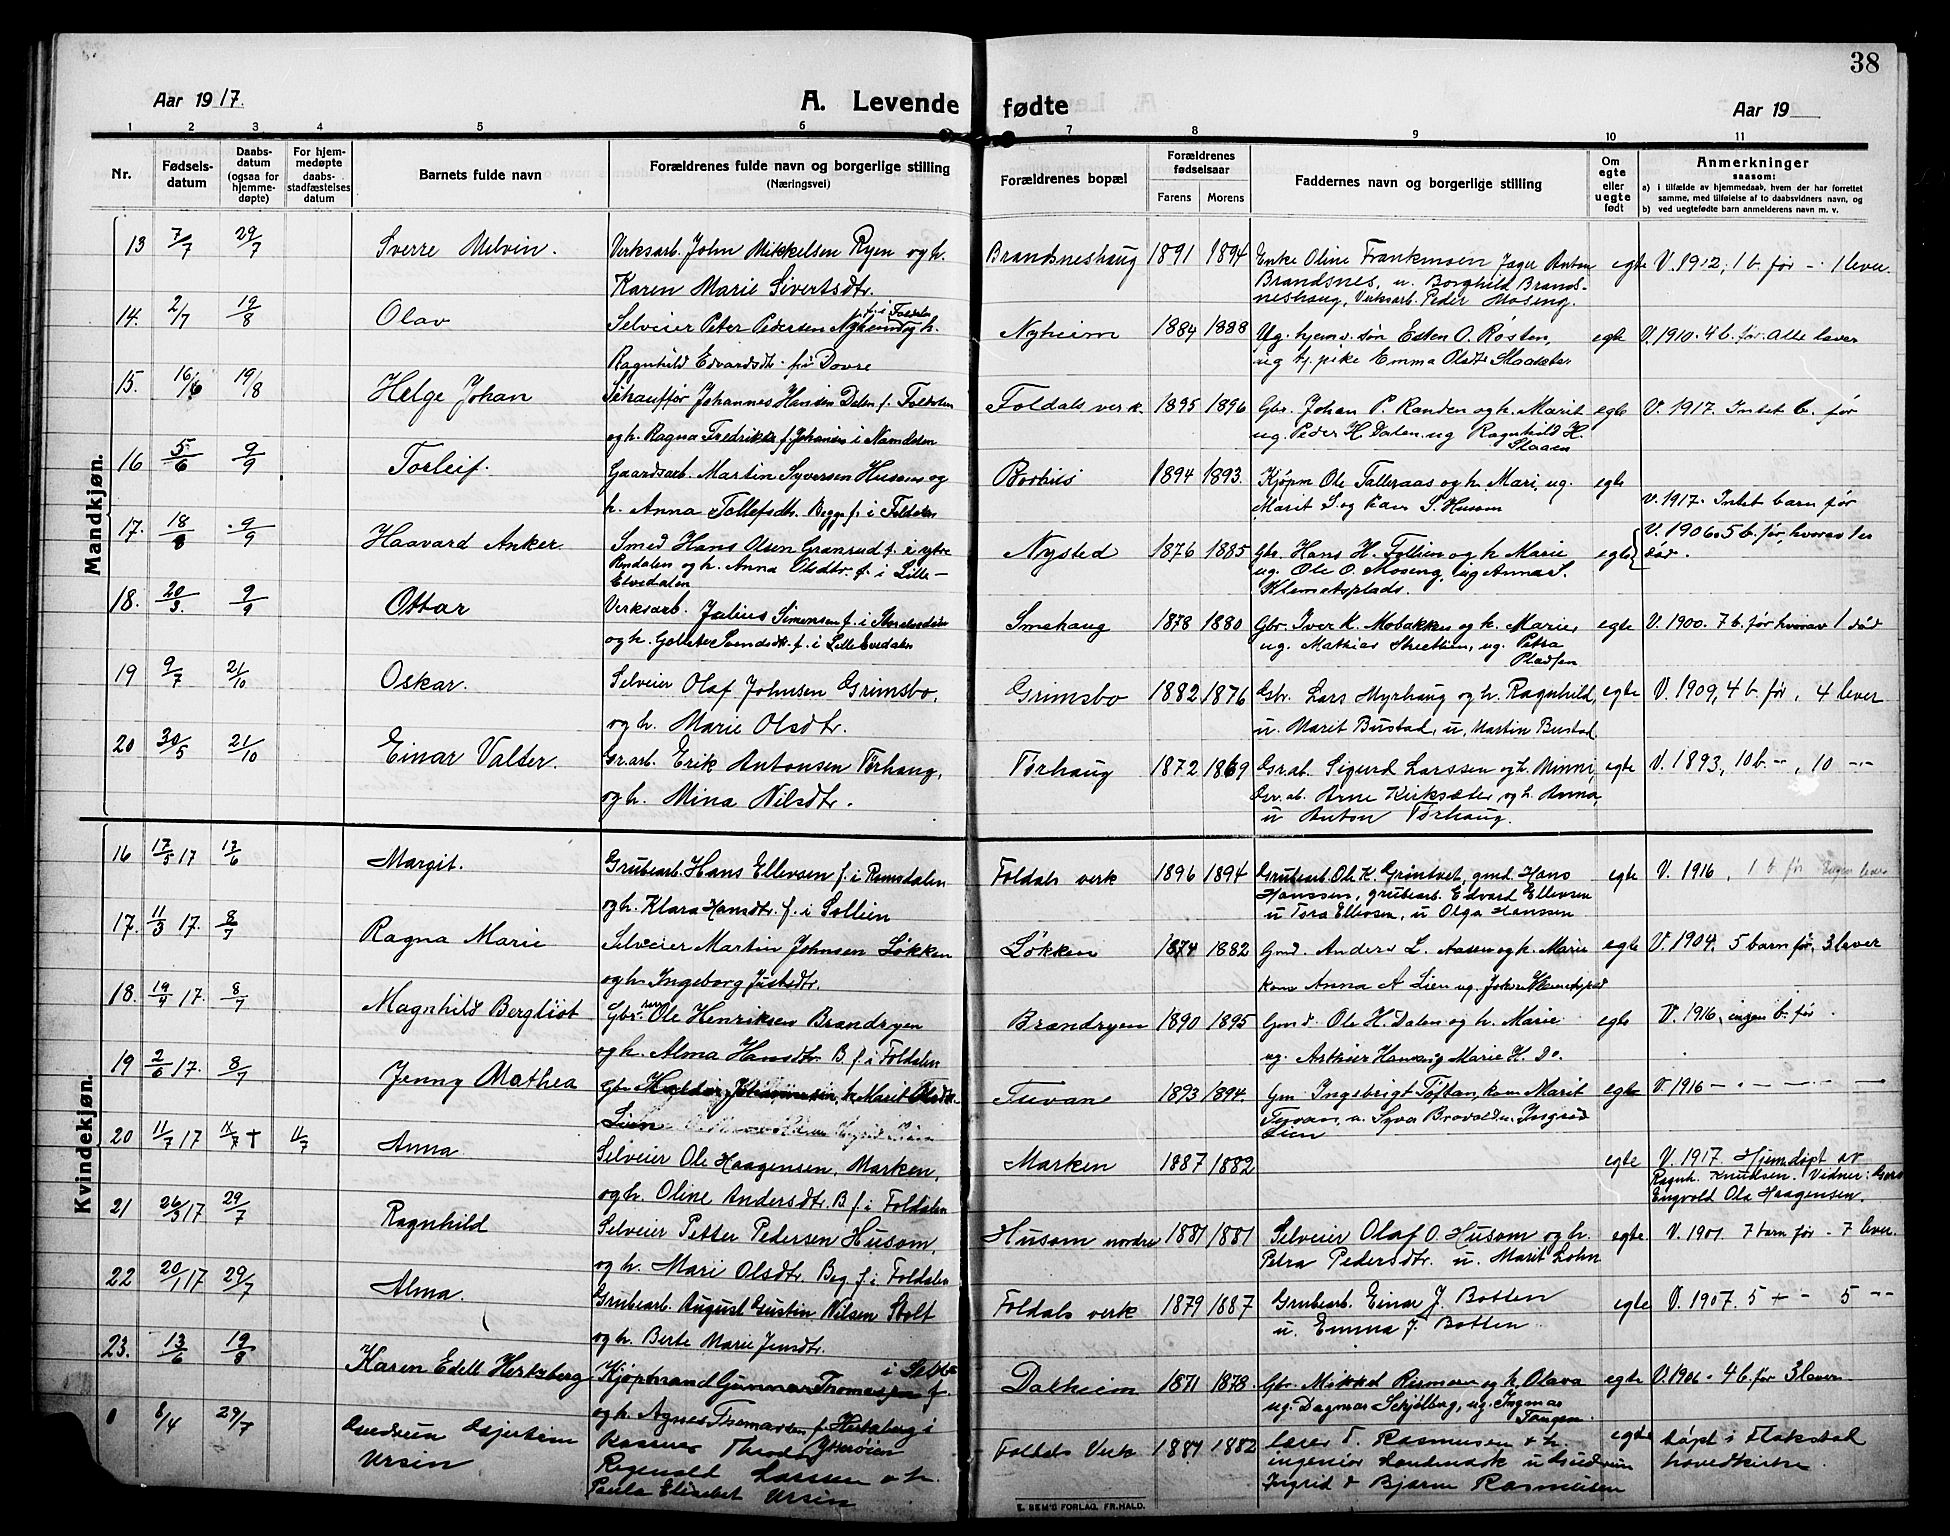 38
Aar 1917.
A. Levende fødte
Aar 19
1 2 3 4 5 6 7 8 9 10 11
Nr.
Fødsels-
datum
Daabs-
datum
(ogsaa for
hjemme-
døpte)
For hjem-
medøpte
daabs-
stadfæstelses
datum
Barnets fulde navn
Forældrenes fulde navn og borgerlige stilling
(Næringsvei)
Forældrenes bopæl
Forældrenes
fødselsaar
Farens Morens
Faddernes navn og borgerlige stilling
Om
egte
eller
uegte
født
Anmerkninger
saasom:
a) i tilfælde av hjemmedaab, hvem der har forrettet
samme, med tilføielse af to daabsvidners navn, og
b) ved uegtefødte barn anmelderens navn m. v.
Mandkjøn.
13 7/7 29/7 Sverre Melvin. Verksarb. John Mikkelsen Ryen og h. Brandsneshaug 1891 1894 Enke Oline Frankmoen Jager Anton egte V. 1912, 1 b. før - 1 lever.
Karen Marie Sivertsdtr. Brandsnes, u. Borghild Brands-
neshaug, Verksarb. Peder Moseng.
14. 2/7 19/8 Olav Selveier Peter Pedersen Nyheim og h. f. i Foldalen Nyheim 1884 1888 Ug. hjemv. søn Esten O. Røsten, egte V. 1910. 4 b. før. Alle lever
Ragnhild Edvardsdtr. fra Dovre ug hj. pike Emma Olsdtr
15. 16/6 19/8 Helge Johan Schauffør Johannes Hansen Dalen f. Foldalen Foldals verk. 1895 1896 Gbr. Johan P. Randen og h. Marit egte V. 1917. Intet b. før
og h. Ragna Fredrikke f. i Namdalen ug. Peder H Dalen. ug Ragnhild H.
16 5/6 9/9 Torleif. Gaardsarb. Martin Syversen Husom og Borhus 1894 1893. Kjøpm Ole Talleraas og h. Mari, ug. egte
h. Anna Tollefsdtr. Begge f. i Foldalen Marit S. og S. Husom V. 1917. Intet barn før
17. 18/8 9/9 Haavard Anker Smed Hans Olsen Granrud f. i ytre Nysted 1876 1885 Gbr. Hans H. Follien og h. Marie egte V. 1906. 5 b. før, hvorav 1 er
Rendalen og h. Anna Olsdtr. f. i Lille- ug. Ole O. Moseng, ug Anna S. død.
Elvedalen Klemetsplads.
18. 20/3. 9/9 Ottar Verksarb. Julius Simensen f. i Smehaug 1878 1880 Gbr. Iver K. Mobakken og h. Marie, egte V. 1900. 7 b. før hvorav 1 død
og h. Svendsdtr. f. i Lille Elvedalen ug. Mathias Streitlien, ug. Petra
Pladsen
19 9/7 21/10 Oskar. Selveier Olaf Johnsen Grimsbo, Grimsbo 1882 1876 Gbr. Lars Myrhaug og h. Ragnhild, egte V. 1909, 4 b. før, 4 lever
og h. Marie Olsdtr. u. Marit Bustad, u. Martin Bustad
20 30/5 21/10 Einar Valter. Gr.arb. Erik Antonsen Tørhaug, Tørhaug 1872 1869 Gr.ab. Sigurd Larssen og h. Minni, egte V. 1893, 10 b. - , 10 - -
og h. Mina Nilsdtr. Gr. ab. Arne Kirksæter og h. Anna,
u Anton Tørhaug.
Kvindekjøn.
16 17/5 17 17/6 Margit. Grubearb. Hans Ellevsen f. i Romsdalen Foldals verk 1896 1894 Grubearb. Ole K. Grimtvet, gmd. Hans egte V. 1916, 1 b. før
og h. Klara Hansdtr. f. i Sollien Hanssen, grubearb. Edvard Ellevsen
u Tora Ellevsen, u Olga Hanssen
17. 11/3 17. 8/7 Ragna Marie Selveier Martin Johnsen Løkken Løkken 1874 1882 Gmd. Anders L. Aasen og h. Marie egte V. 1904. 5 barn før, 3 lever
og h. Ingeborg Justsdtr. Kone Anna A Lien ug. John Klemetsplads
18. 19/4 17. 8/7 Magnhild Bergliot Gbr. Ole Henriksen Brandryen Brandryen 1890 1895 Gmd. Ole H. Dalen og h. Marie egte V. 1916, ingen b. før
og h. Alma Hansdtr. B. f. i Foldalen ug. Arthur Hansen ug Marie H. Do.
19 2/6 17. 8/7 Jenny Mathea Gbr. h. Marit Olsdtr. Tuvan 1893 1894. Gm. Ingebrigt Toftan, kone Marit egte V. 1916 - - -
Lien Tuvan, u. Syver Bravold u. Ingrid
Lien
20 11/7 17 11/7 † 11/7 Anna Selveier Ole Haagensen, Marken, Marken 1887 1882 egte V. 1917 Hjemdøpt av
og h. Oline Andersdtr. B. f. i Foldalen Ragnh. Knudsen. Vidner:
Engvold Ole Haagensen.
21 26/3 17 29/7 Ragnhild Selveier Petter Pedersen Husom, Husom nordre 1881 1881 Selveier Olaf O. Husom og h. egte. V. 1901. 7 barn før - 7 lever.
og h. Mari Olsdtr. Beg. f. i Foldalen Petra Pedersdtr. u. Marit Lohn
22 20/1 17 29/7 Alma. Grubearb. August Gustin Nilsen Stolt Foldals verk 1879 1887 Grubearb. Einar J. Botten egte V. 1907. 5 - - 5 - -
og h. Berte Marie Jensdtr. u. Emma J. Botten
23. 13/6 19/8 Karen Edell Hertzberg Kjøpmand Gunnar Thomassen f. i Selbu Dalheim 1871 1878. Gbr. Mikkel Rusmoen og h. Olava egte V. 1906. 4 b. før 3 lever
og h. Agnes Thomassen f. Hertzberg i ug. Dagmar Schjølberg, ug. Ingmar
Ytterøien Tangen.
8/4 29/7 Gudrun Asjertine Foldals Verk 1887 1882 Lærer T. Rasmussen & h. egte Døpt i Flakstad
Ursin Regenald Larssen o h. ingeniør Landmark u Gudrun hovedkirke.
Paula Elisabet Ursin Ingrid & Bjarne Rasmussen
E. SEM'S FORLAG, FR.HALD.